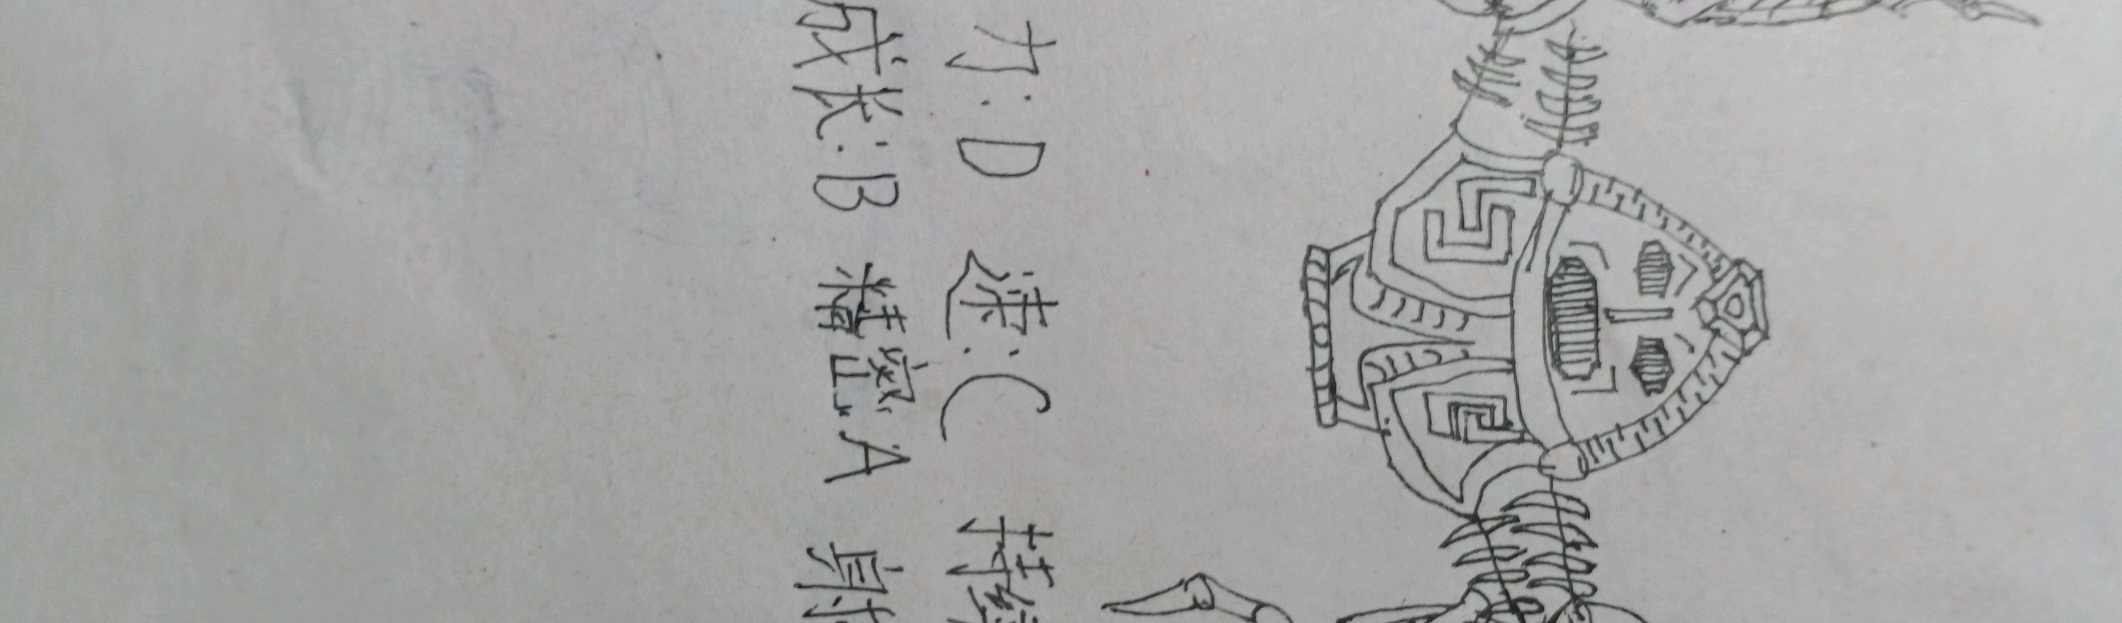 力:D 速:C 持
成长:B 精密:A